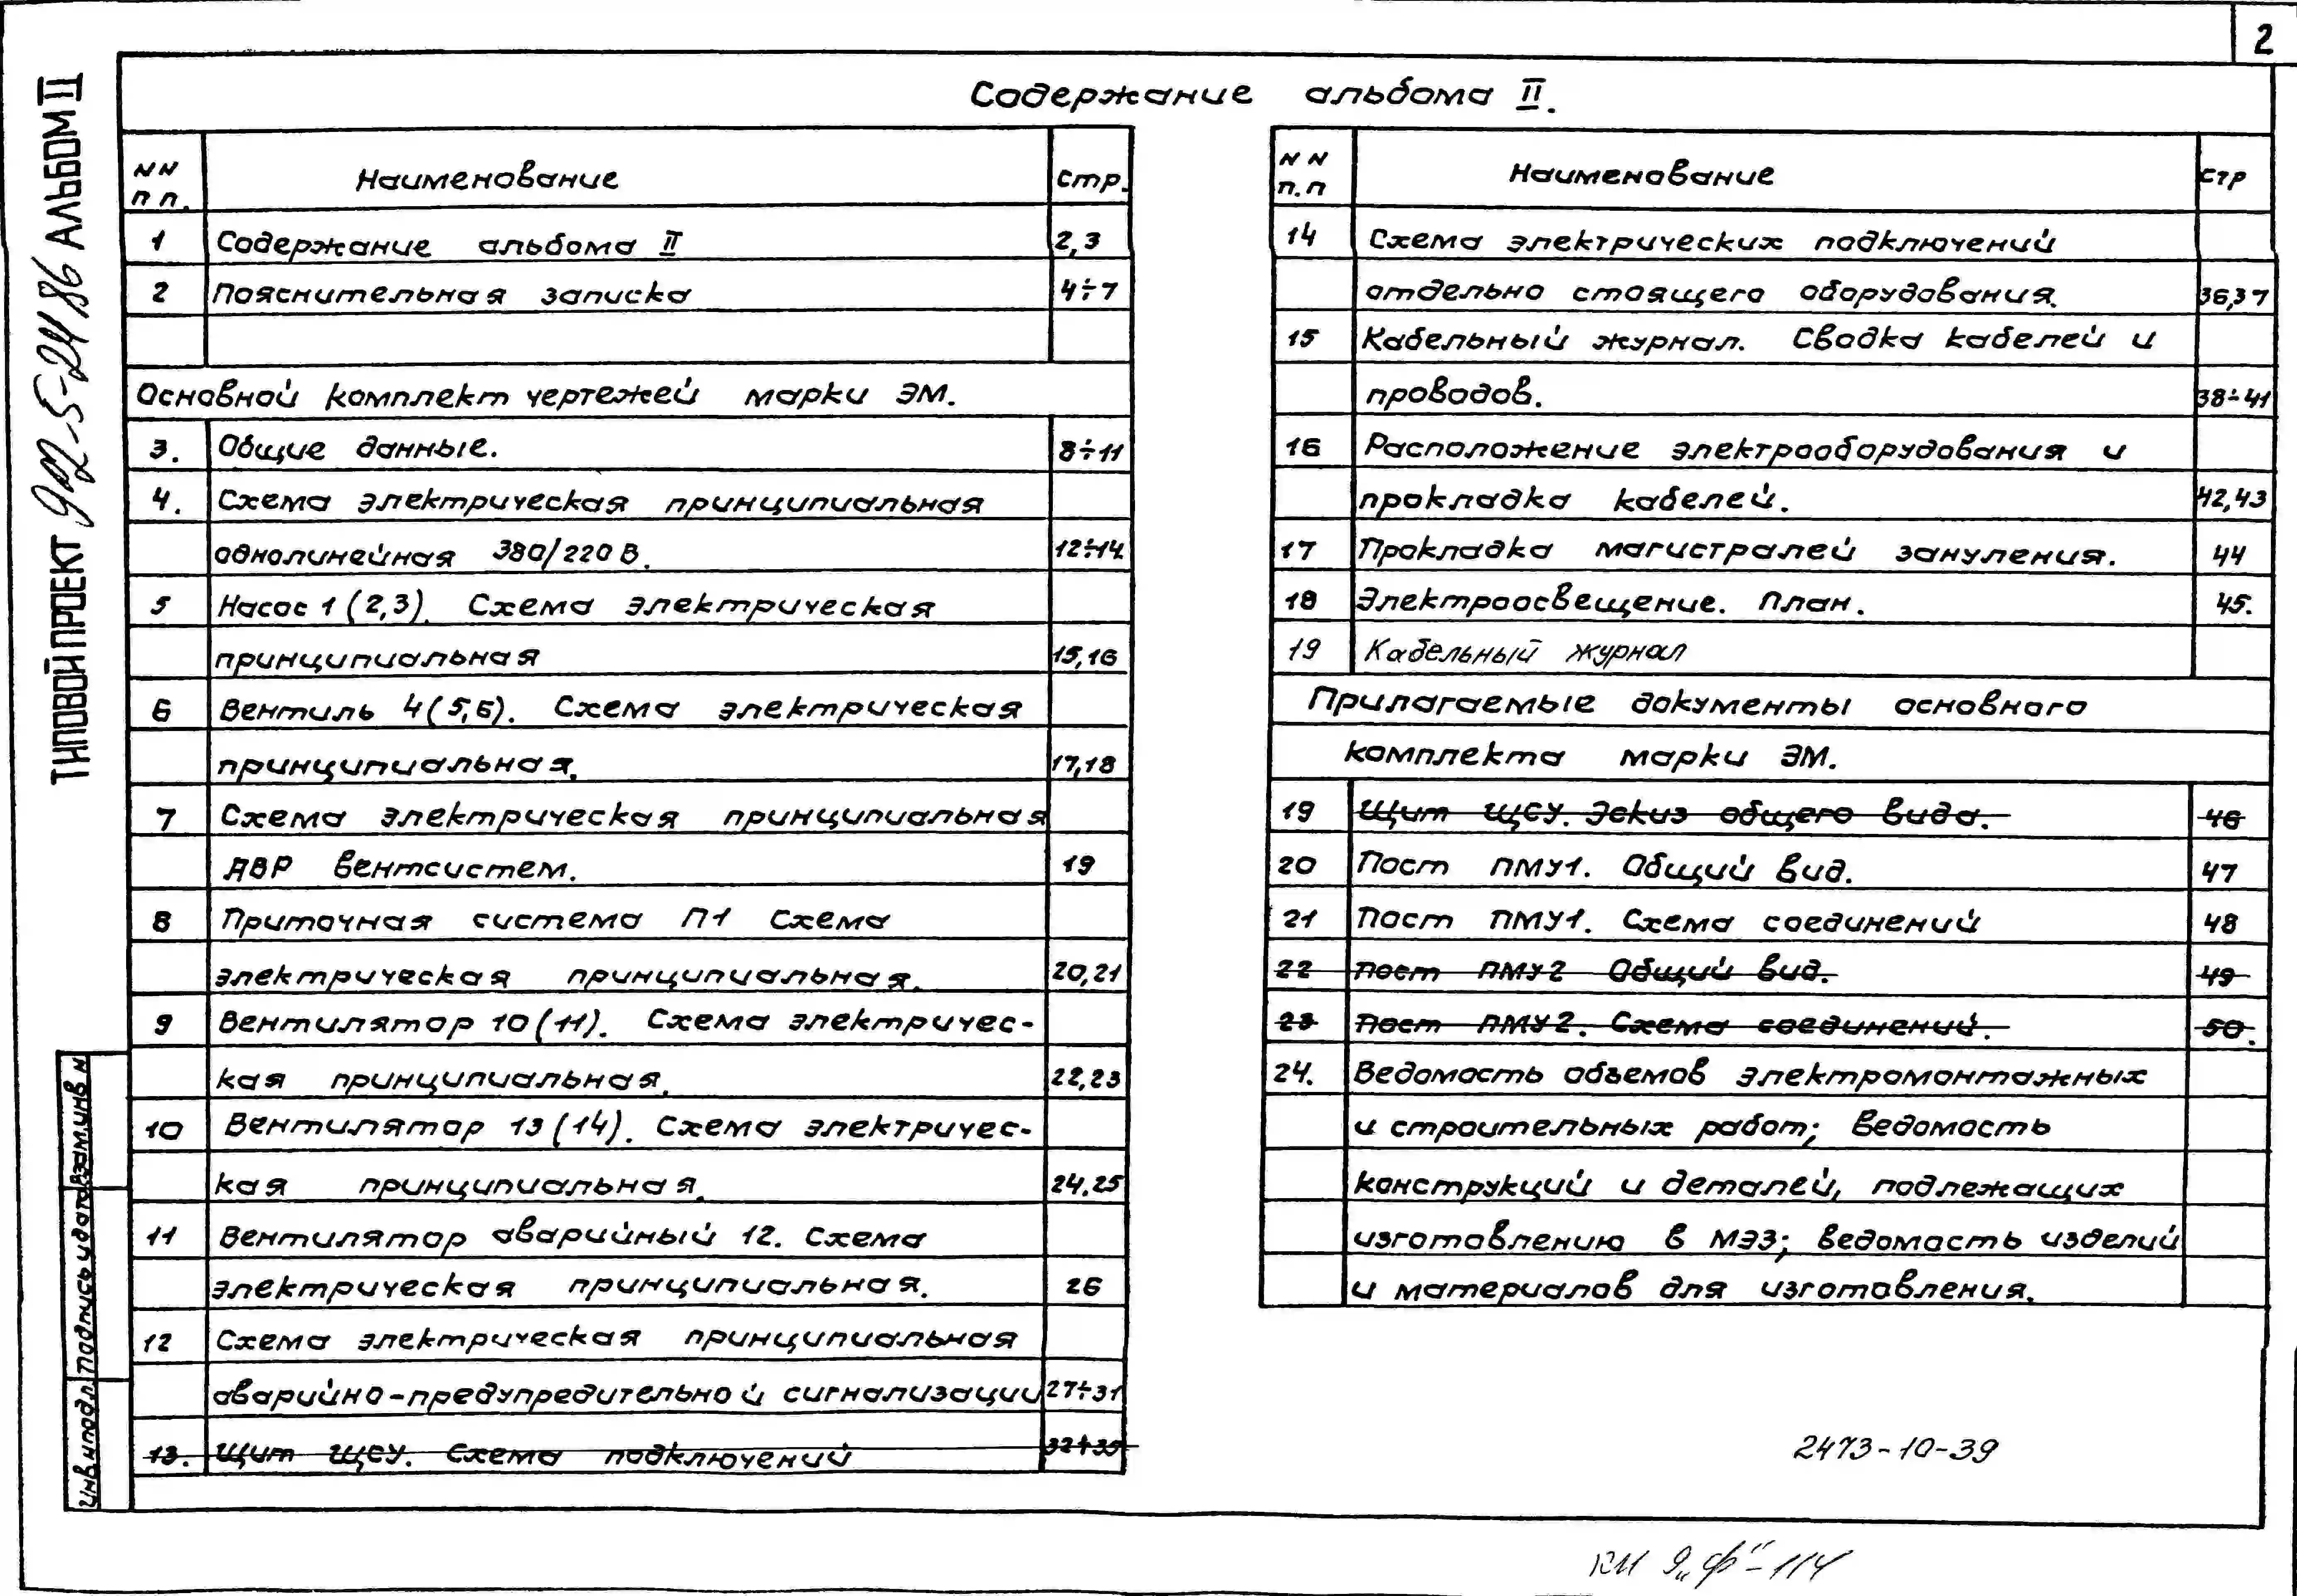 2
ТИПОВОЙ ПРОЕКТ 902-5-24.86 АЛЬБОМ II
Содержание альбома II.
NN п п. Наименование стр.
1 Содержание альбома II 2,3
2 Пояснительная записка 4÷7
Основной комплект чертежей марки ЭМ.
3. Общие данные. 8÷11
4. Схема электрическая принципиальная
однолинейная 380/220 В. 12÷14
5 Насос 1 (2,3). Схема электрическая
принципиальная 15,16
6 Вентиль 4 (5,6). Схема электрическая
принципиальная. 17,18
7 Схема электрическая принципиальная
АВР вентсистем. 19
8 Приточная система П1 Схема
электрическая принципиальная. 20,21
9 Вентилятор 10 (11). Схема электричес-
кая принципиальная. 22,23
10 Вентилятор 13 (14). Схема электричес-
кая принципиальная. 24,25
11 Вентилятор аварийный 12. Схема
электрическая принципиальная. 26
12 Схема электрическая принципиальная
аварийно-предупредительной сигнализации 27÷31
13. Щит ЩСУ. Схема подключений 32÷35
NN п.п Наименование стр
14 Схема электрических подключений
отдельно стоящего оборудования. 36,37
15 Кабельный журнал. Сводка кабелей и
проводов. 38÷41
16 Расположение электрооборудования и
прокладка кабелей. 42,43
17 Прокладка магистралей зануления. 44
18 Электроосвещение. План. 45.
19 Кабельный журнал
Прилагаемые документы основного
комплекта марки ЭМ.
19 Щит ЩСУ. Эскиз общего вида. 46
20 Пост ПМУ1. Общий вид. 47
21 Пост ПМУ1. Схема соединений 48
22 Пост ПМУ2 Общий вид. 49
23 Пост ПМУ2. Схема соединений. 50.
24. Ведомость объемов электромонтажных
и строительных работ; Ведомость
конструкций и деталей, подлежащих
изготовлению в МЭЗ; ведомость изделий
и материалов для изготовления.
Инв.№подл. Подпись и дата Взам.инв №
2473-10-39
КИ 9„Ф"-114